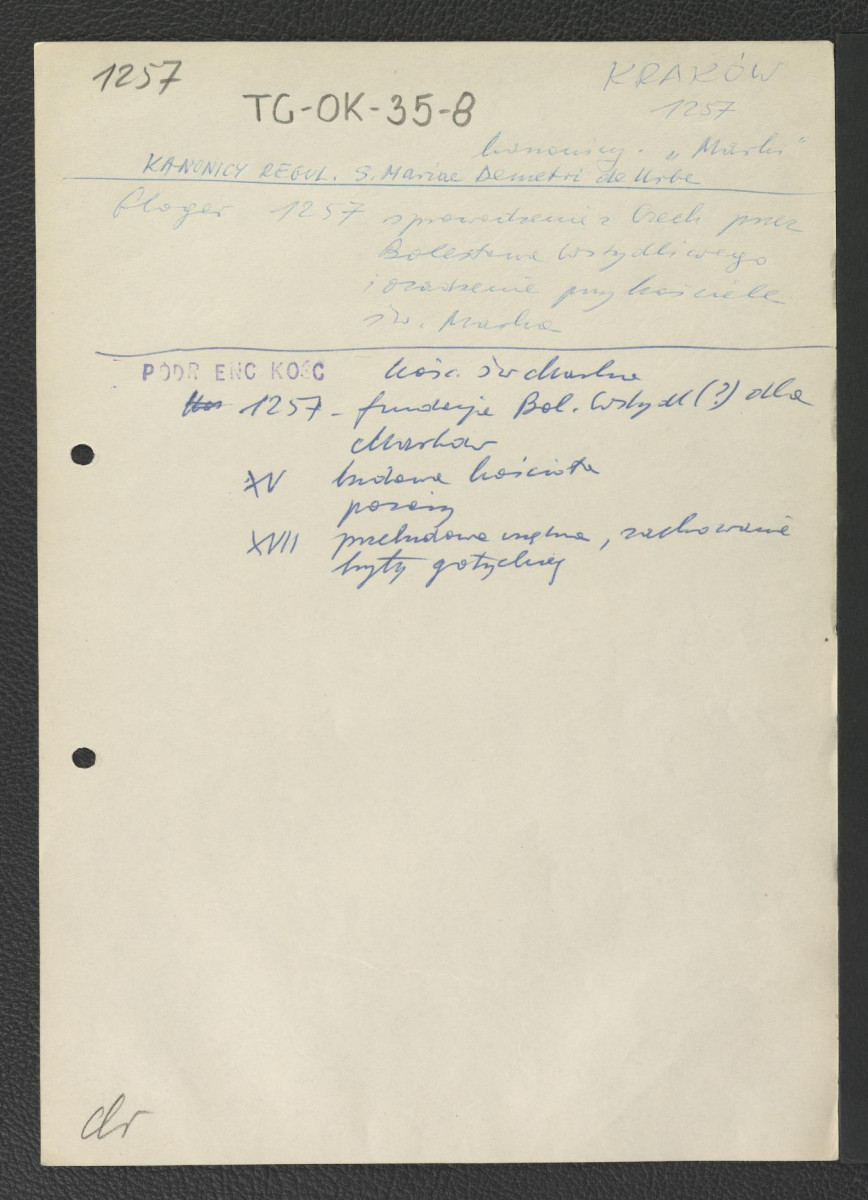 1257
KRAKÓW
TG-OK-35-8
1257
kanonicy. „Marki"
KANONICY REGUL. S. Mariae Demetri de Urbe
Gloger 1257 sprowadzenie z Czech przez
Bolesława Wstydliwego
i osadzenie przy kościele
św. Marka
PODR ENC KOŚC kośc. św Marka
1257 - fundacja Bol. Wstydl (?) dla
Marków
XV budowa kościoła
pożary
XVII przebudowa wnętrza, zachowanie
bryły gotyckiej
dr